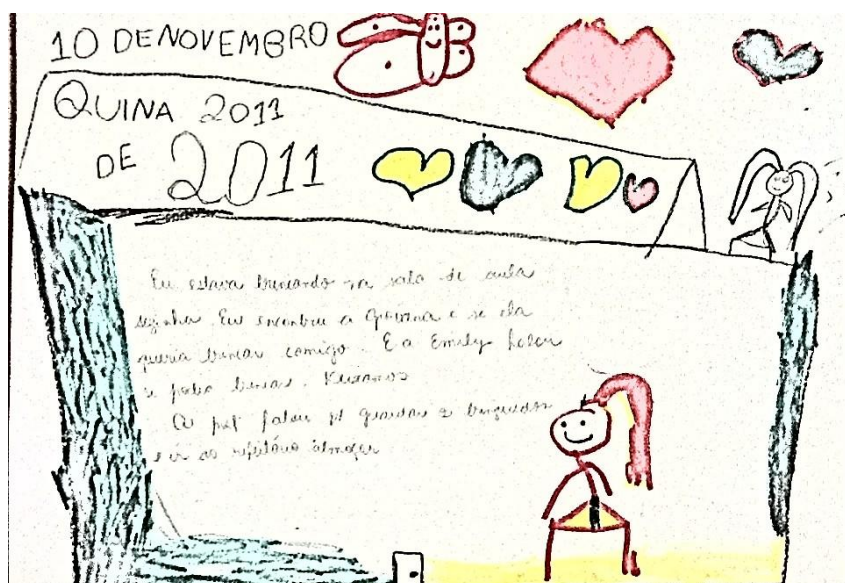 10 DE NOVEMBRO
QUINA 2011
DE 2011
Eu estava brincando na sala de aula
sozinha. Eu encontrei a Giovanna e se ela
queria brincar comigo. E a Emily falou
e brincar.
A prof falou pt guardar o brinquedos
e ir ao refeitório almoçar